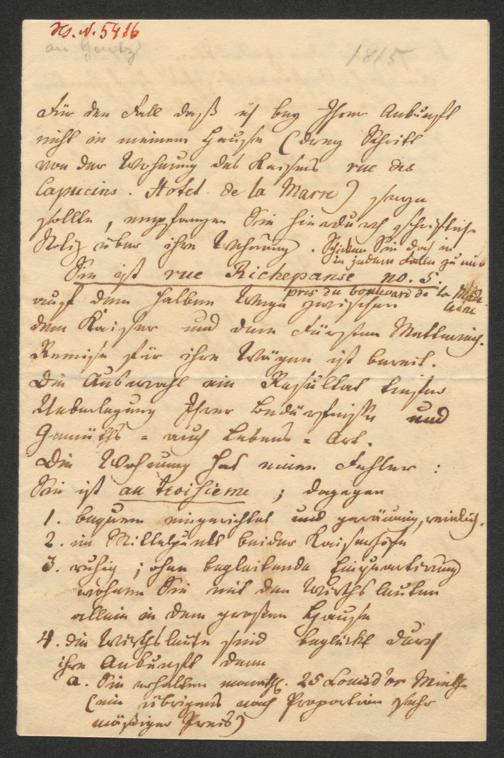 Hs. N. 5486
an Gentz
1815
Für den Fall daß ich bey Ihrer Ankunft
nicht in meinem Hause (drey Schritt
von der Wohnung des Kaisers rue des
Capucins. Hotel de la Marre) seyn
sollte, empfangen Sie hierdurch schriftliche
Notiz über ihre Wohnung. Schicken Sie doch
in jedem Falle zu mir
Sie ist rue Richepanse no. 5.
près du boulevard de la Madeleine
auf dem halben Wege zwischen
dem Kaiser und dem Fürsten Metternich.
Remise für ihre Wägen ist bereit.
Die Auswahl ein Resultat tiefster
Ueberlegung Ihrer Bedürfnisse und
Gemüths = auch Lebens = Art.
Die Wohnung hat einen Fehler:
Sie ist au troisieme; dagegen
1. bequem eingerichtet und geräumig, reinlich.
2. im Mittelpunkt beider Kaiserhöfe
3. ruhig; ohne begleitende Einquartierung
wohnen Sie mit den Wirthsleuten
allein in dem großen Hause
4. die Wirthsleute sind beglückt durch
ihre Ankunft denn
a. Sie erhalten monatl. 25 Louisd'or Miethe
(ein übrigens nach Proportion sehr
mäßiger Preis)